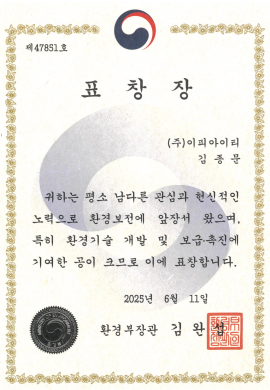 제47851호
표 창 장
(주)이피아이티
김 종 문
귀하는 평소 남다른 관심과 헌신적인
노력으로 환경보전에 앞장서 왔으며,
특히 환경기술 개발 및 보급·촉진에
기여한 공이 크므로 이에 표창합니다.
2025년 6월 11일
환경부장관 김 완 섭